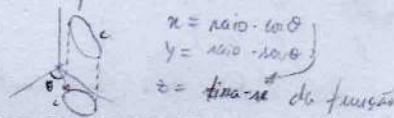 c
x = raio · cosθ
y = raio · senθ
z = tira-se da função
θ
c